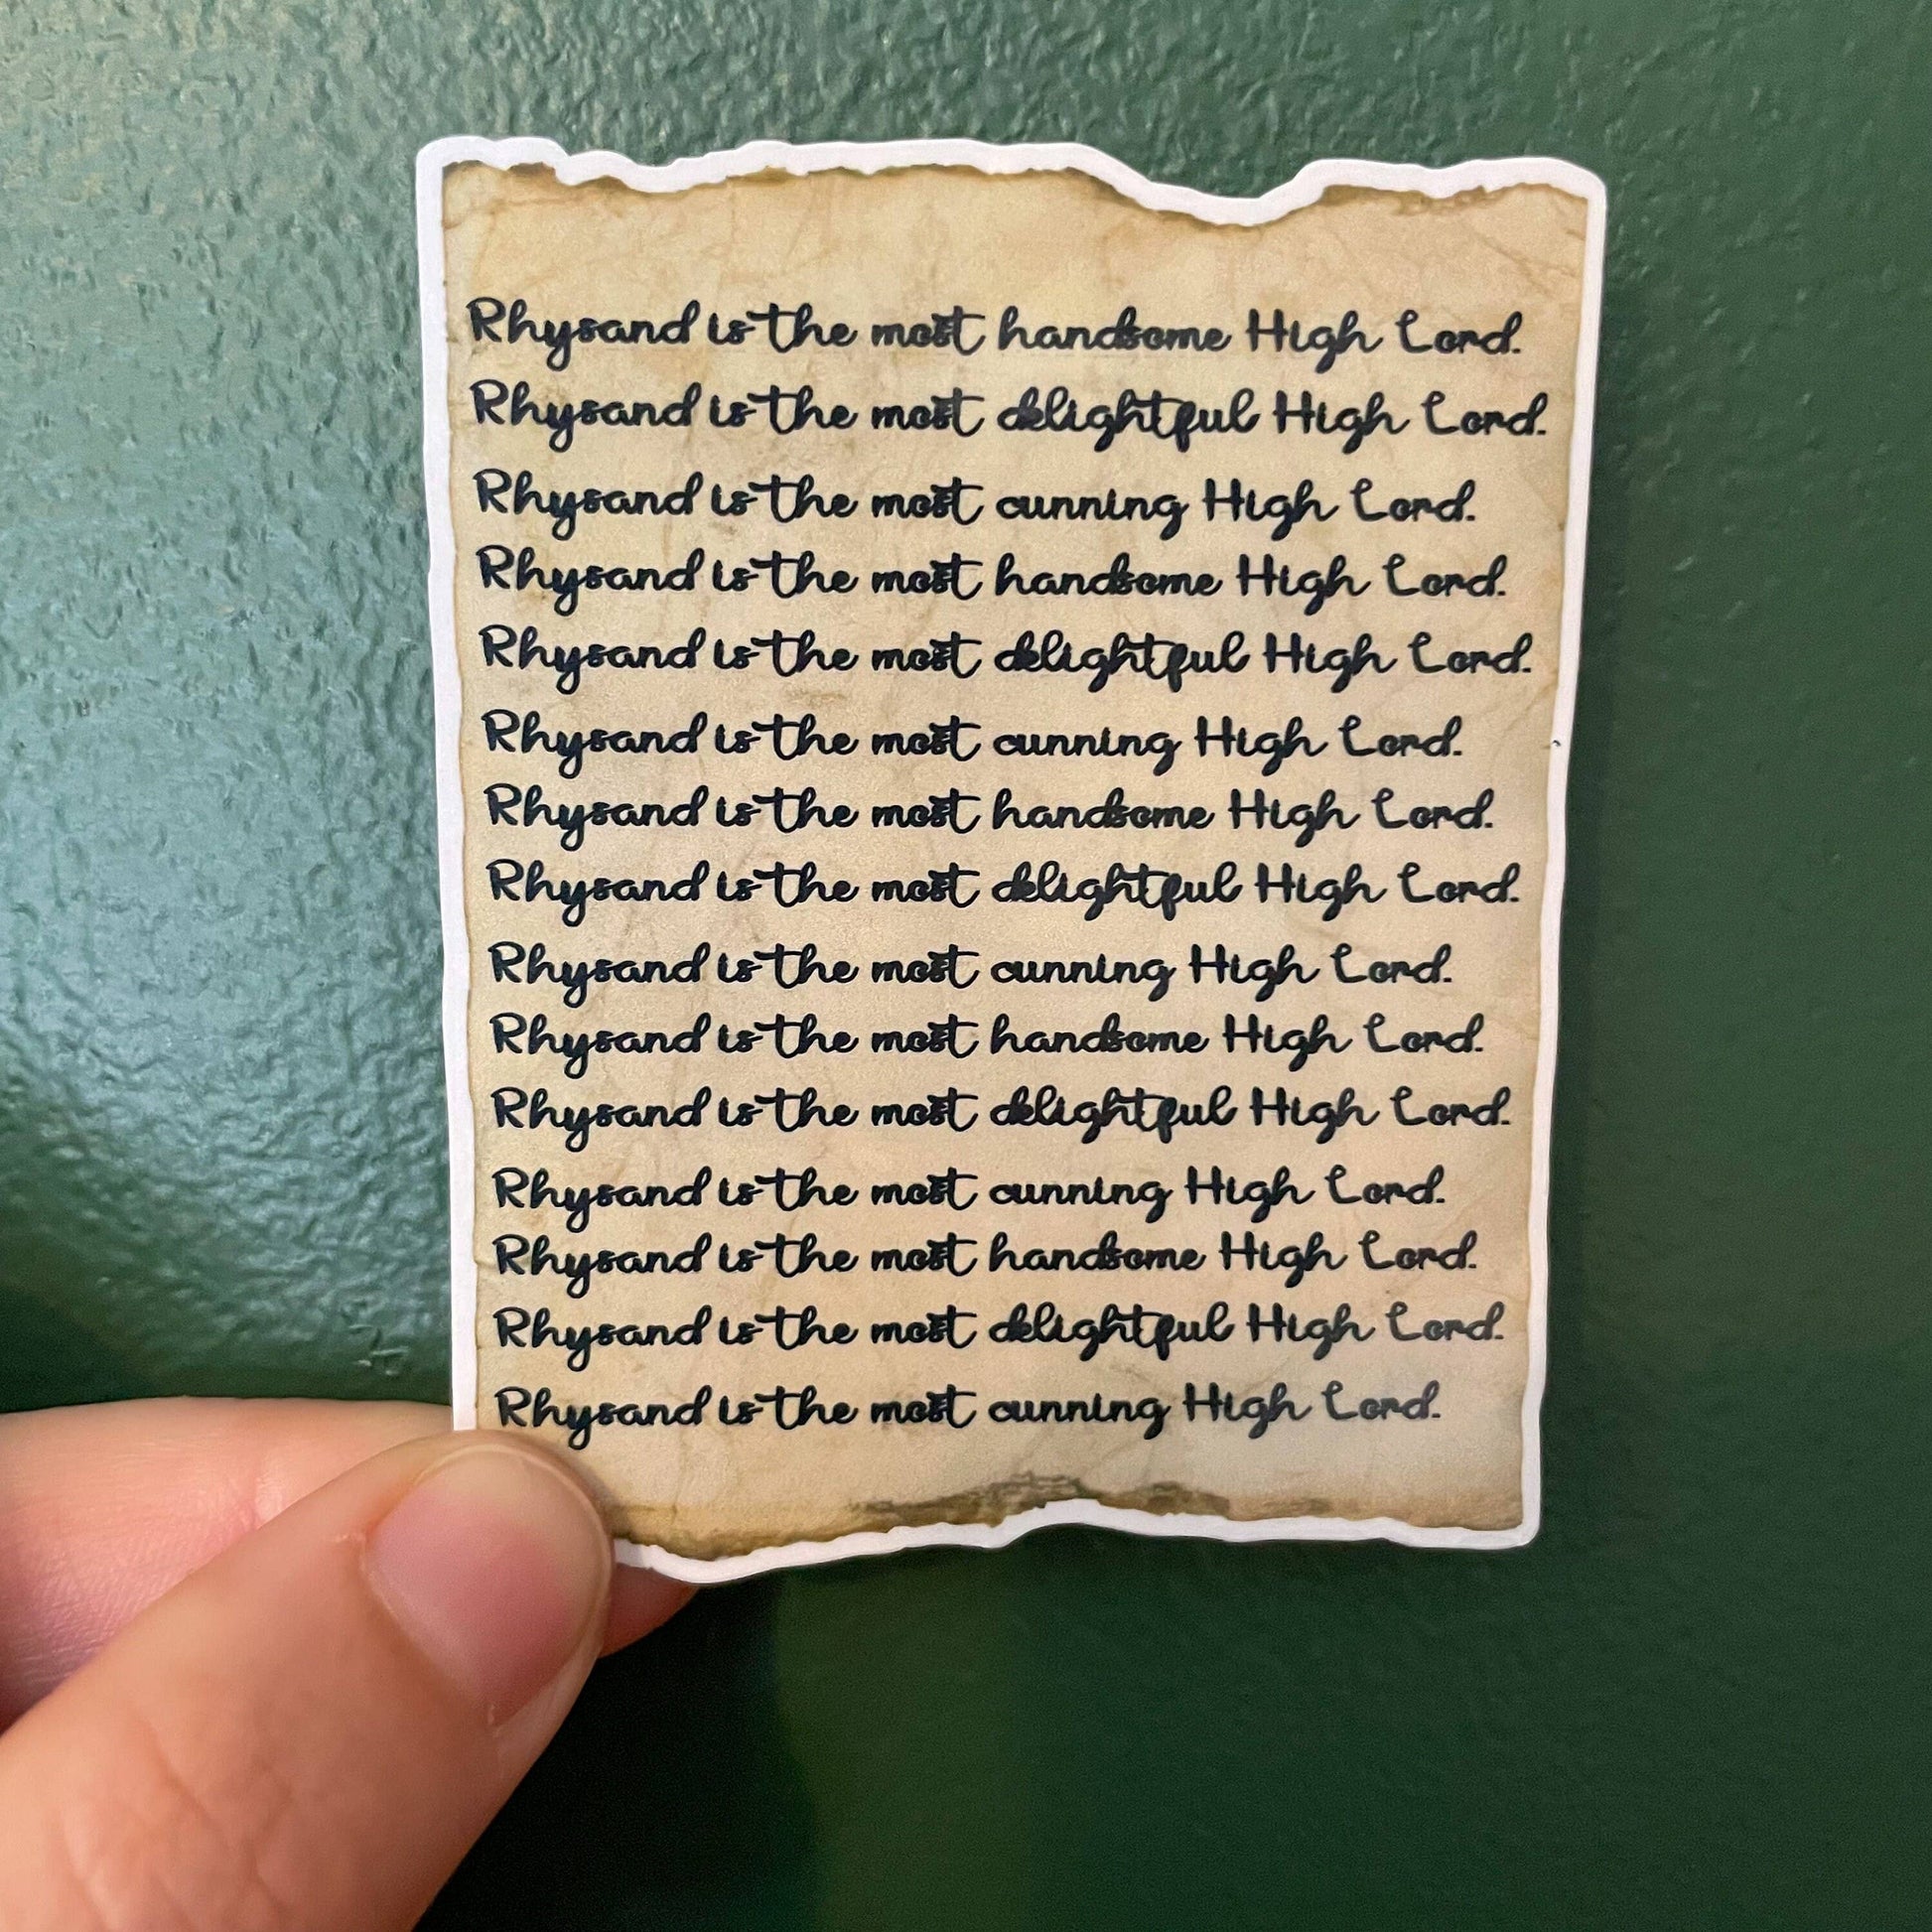 Rhysand is the most handsome High Lord.
Rhysand is the most delightful High Lord.
Rhysand is the most cunning High Lord.
Rhysand is the most handsome High Lord.
Rhysand is the most delightful High Lord.
Rhysand is the most cunning High Lord.
Rhysand is the most handsome High Lord.
Rhysand is the most delightful High Lord.
Rhysand is the most cunning High Lord.
Rhysand is the most handsome High Lord.
Rhysand is the most delightful High Lord.
Rhysand is the most cunning High Lord.
Rhysand is the most handsome High Lord.
Rhysand is the most delightful High Lord.
Rhysand is the most cunning High Lord.